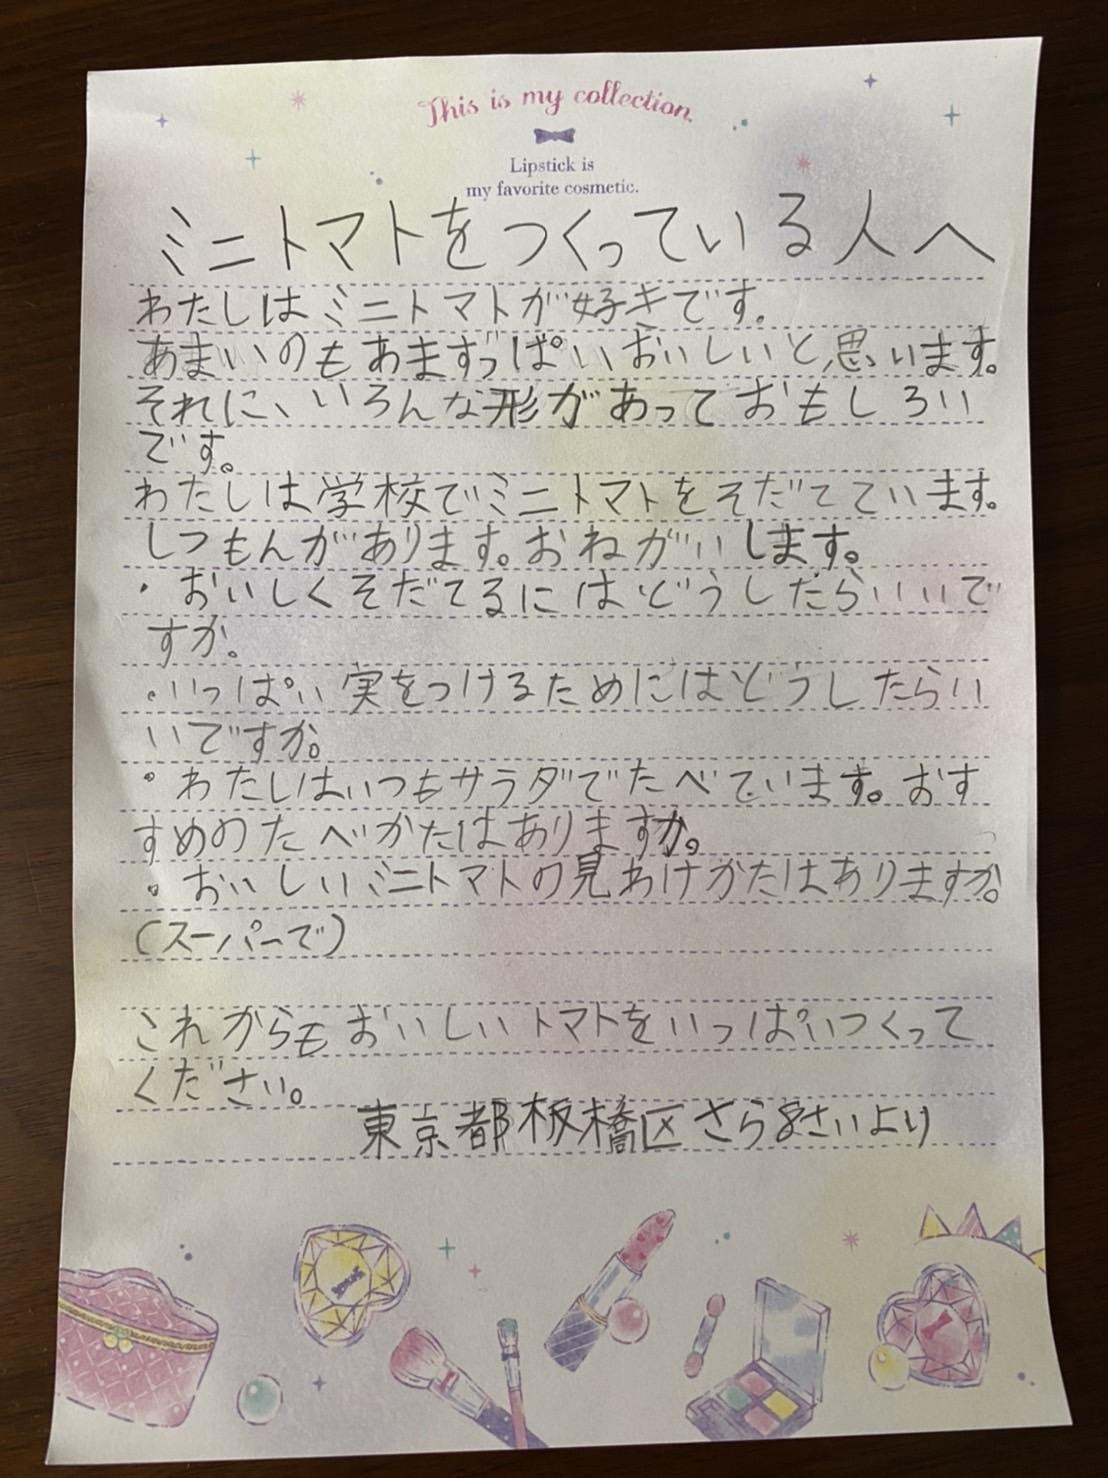 This is my collection.
Lipstick is
my favorite cosmetic.
ミニトマトをつくっている人へ
わたしはミニトマトが好きです。
あまいのもあまずっぱいおいしいと思います。
それに、いろんな形があっておもしろい
です。
わたしは学校でミニトマトをそだてています。
しつもんがあります。おねがいします。
・おいしくそだてるにはどうしたらいいで
すか。
・いっぱい実をつけるためにはどうしたらい
いですか。
・わたしはいつもサラダでたべています。おす
すめのたべかたはありますか。
・おいしいミニトマトの見わけかたはありますか。
(スーパーで)
これからもおいしいトマトをいっぱいつくって
ください。
東京都板橋区さら8さいより